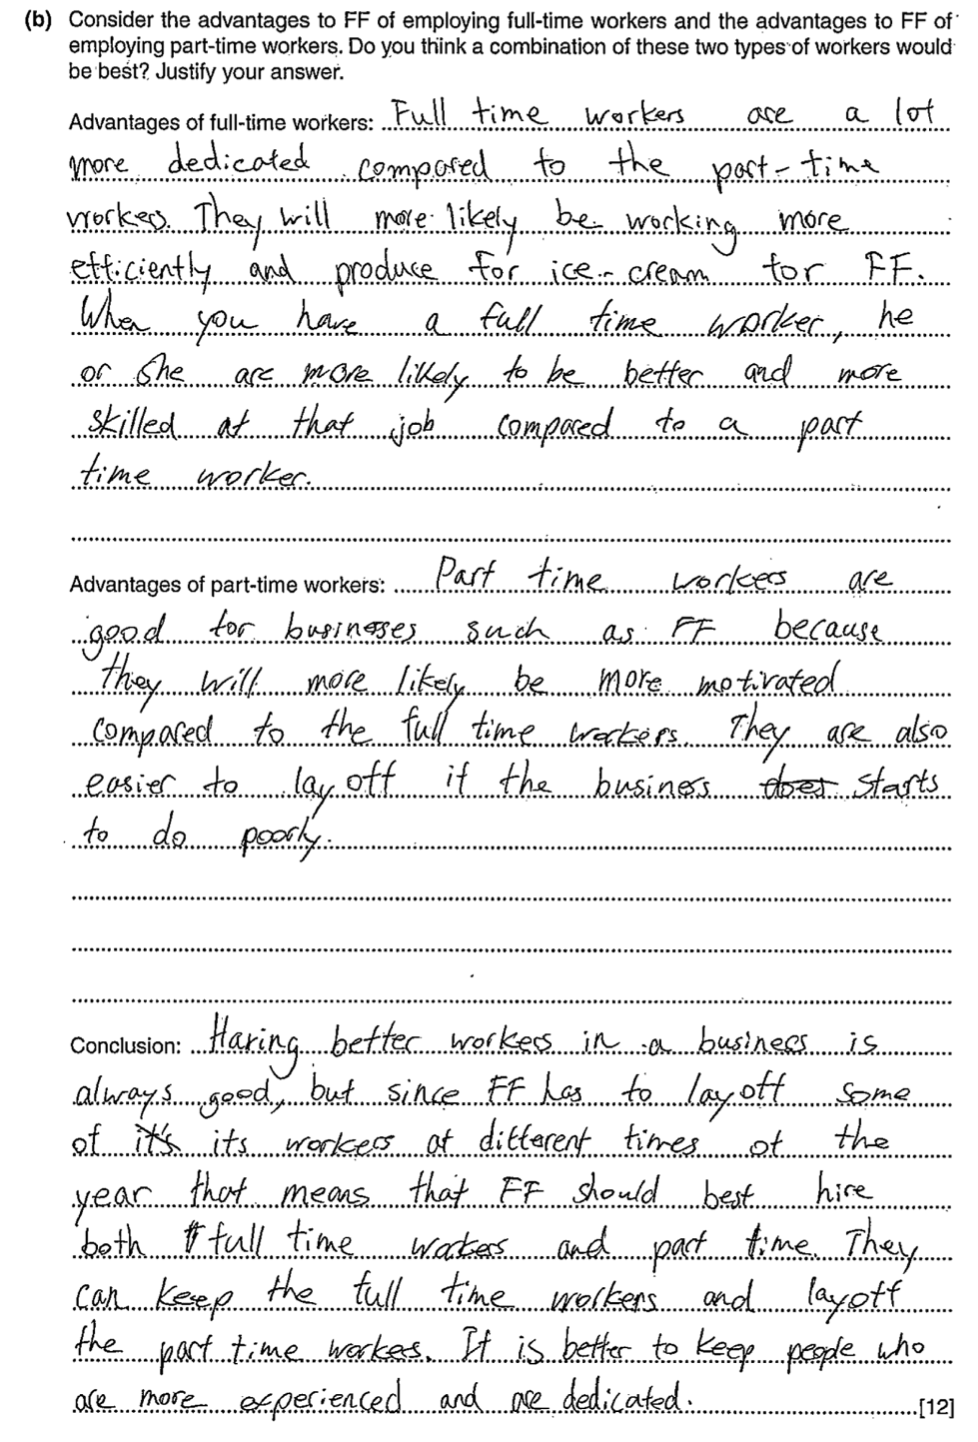 (b) Consider the advantages to FF of employing full-time workers and the advantages to FF of
employing part-time workers. Do you think a combination of these two types of workers would
be best? Justify your answer.
Advantages of full-time workers: Full time workers are a lot
more dedicated compared to the part-time
workers. They will more likely be working more
efficiently and produce for ice-cream for FF.
When you have a full time worker, he
or she are more likely to be better and more
skilled at that job compared to a part
time worker.
Advantages of part-time workers: Part time workers are
good for businesses such as FF because
they will more likely be more motivated
compared to the full time workers. They are also
easier to lay off if the business does starts
to do poorly.
Conclusion: Having better workers in a business is
always good, but since FF has to layoff some
of it's its workers at different times of the
year that means that FF should best hire
both full time workers and part time. They
can keep the full time workers and layoff
the part time workers. It is better to keep people who
are more experienced and are dedicated. [12]